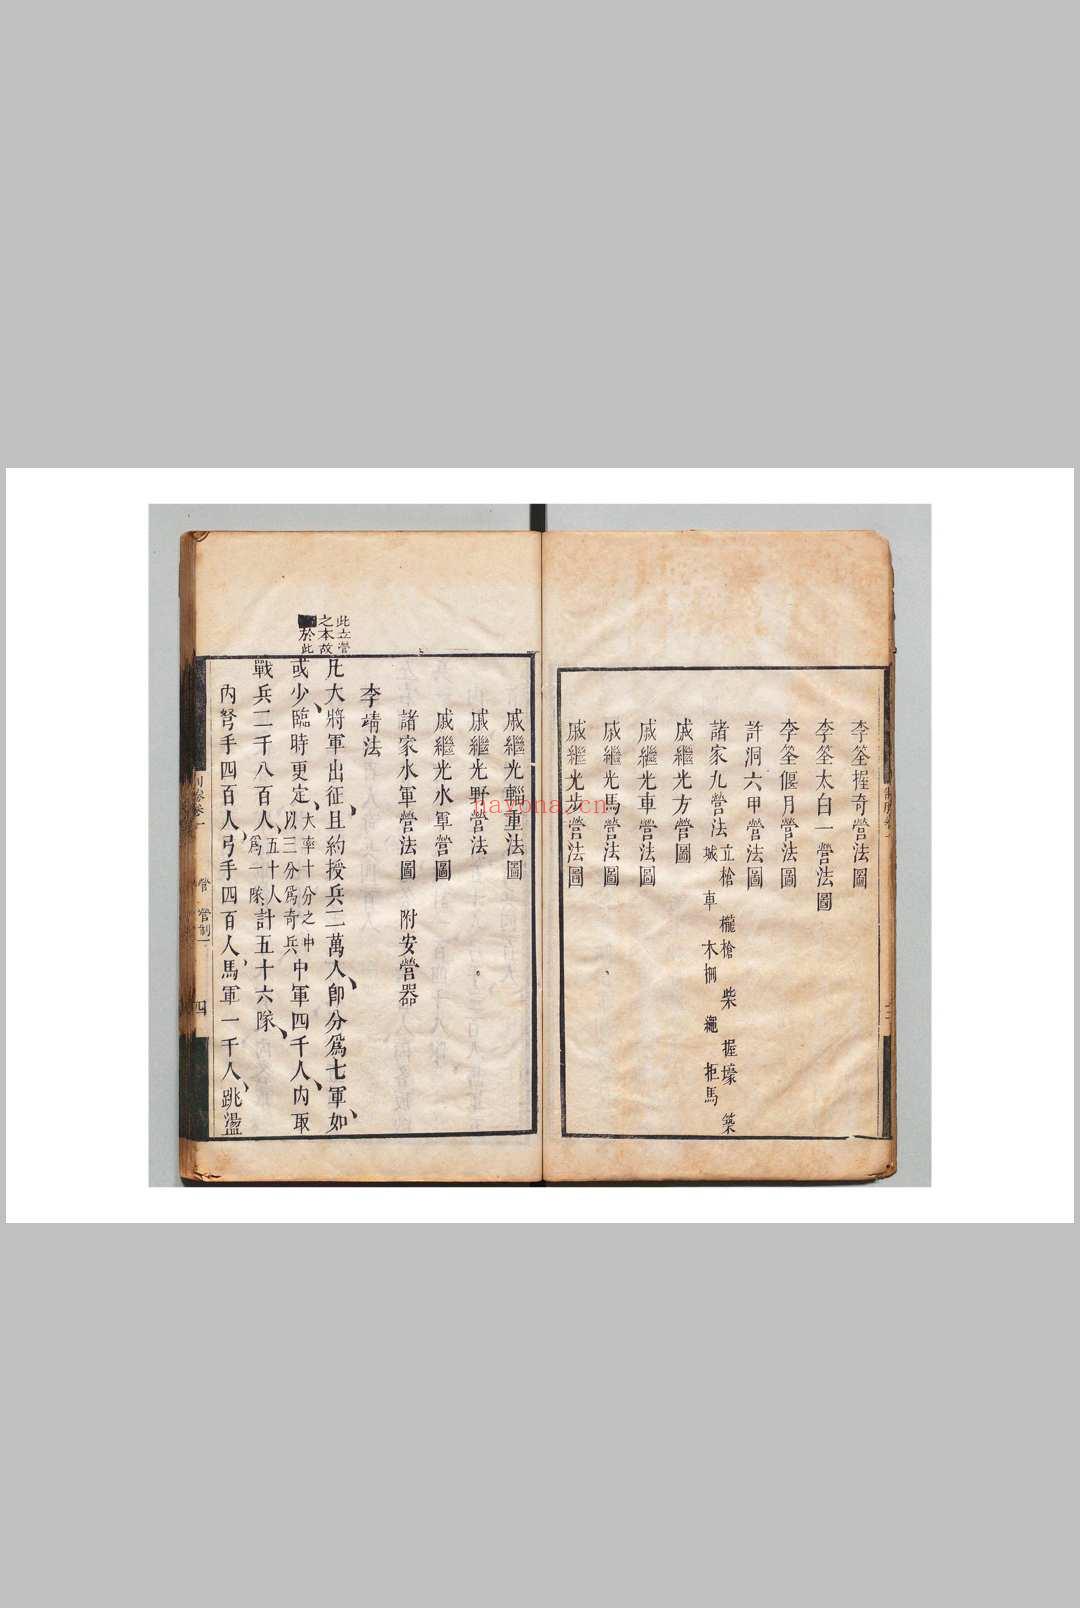 李筌握奇營法圖
李筌太白一營法圖
李筌偃月營法圖
許洞六甲營法圖
諸家九營法圖 立槍 櫳槍 柴 掘壕 築城 車 木柵 繩 拒馬
戚繼光方營圖
戚繼光車營法圖
戚繼光馬營法圖
戚繼光步營法圖
戚繼光輜重法圖
戚繼光野營法
戚繼光水軍營圖
諸家水軍營法圖 附安營器
李靖法
此立營
之本故
於此
凡大將軍出征、且約授兵二萬人、即分爲七軍、如
或少、臨時更定、大率十分之中以三分爲奇兵中軍四千人、內取
戰兵二千八百人、五十人爲一隊計五十六隊、
內弩手四百人、弓手四百人、馬軍一千人、跳盪
卷一
營 營制
四
nayona.cn